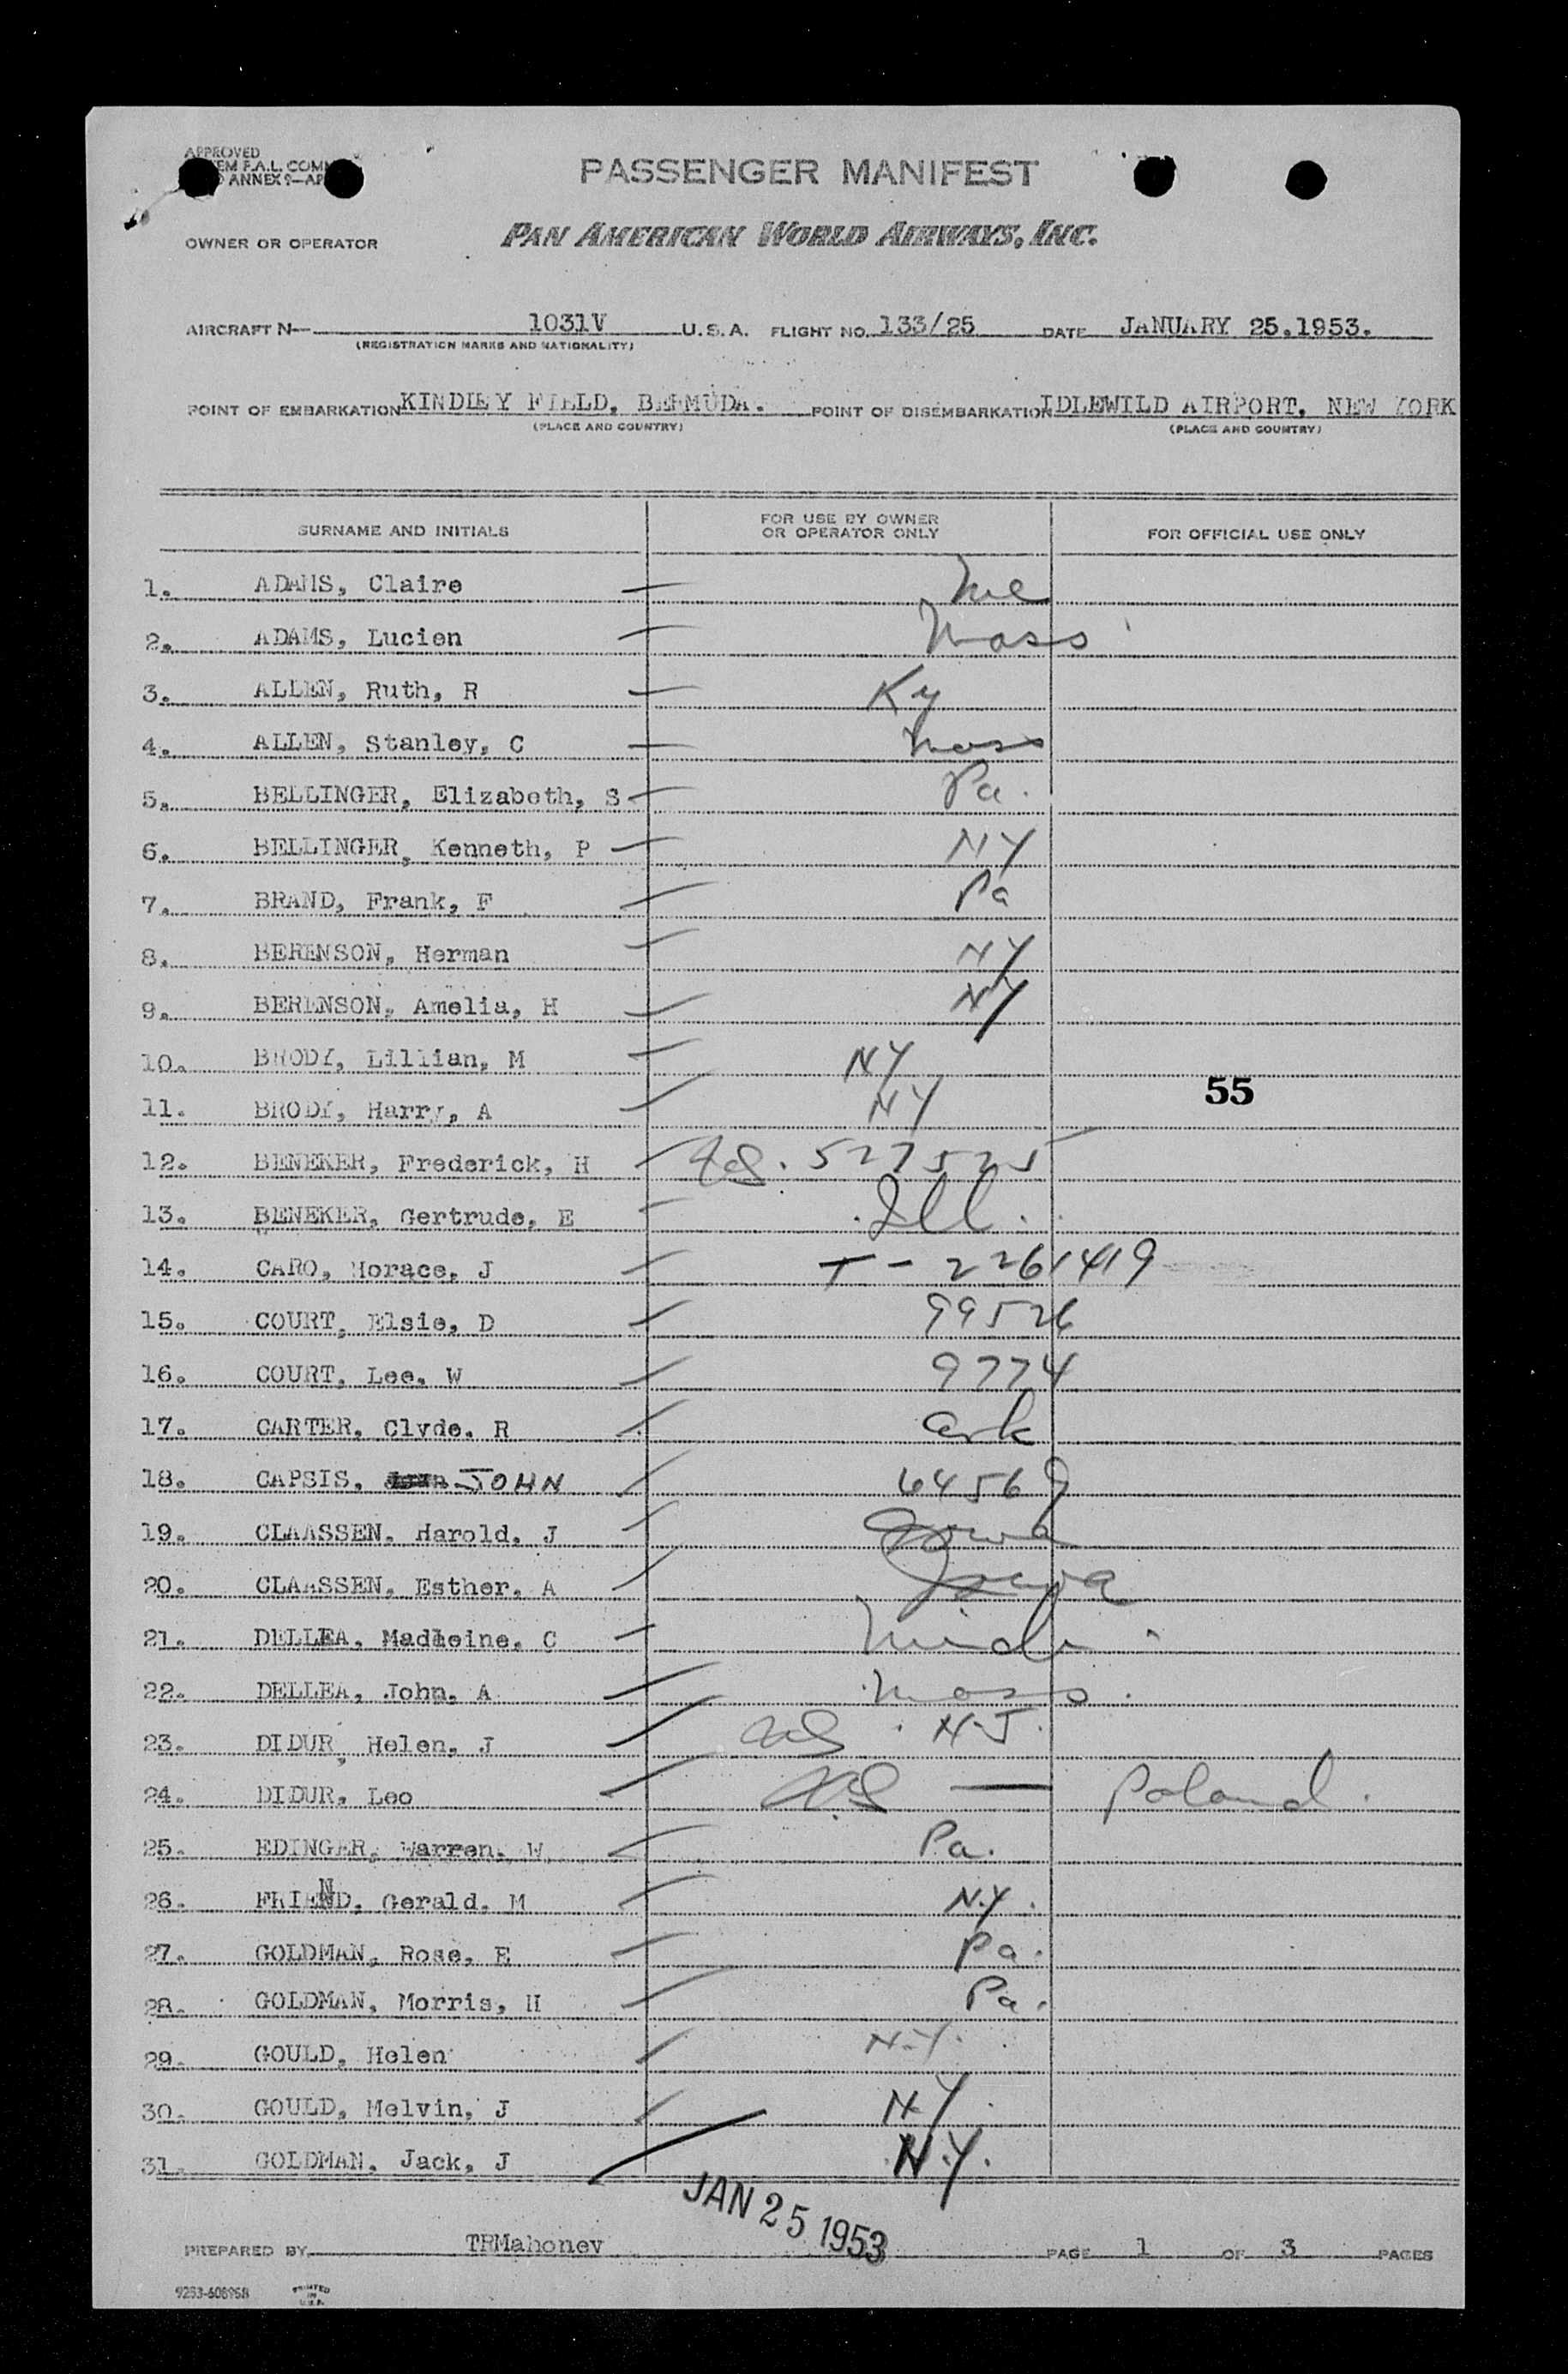 APPROVED
F.A.L. COMM
ANNEX 9—AP
PASSENGER MANIFEST
OWNER OR OPERATOR PAN AMERICAN WORLD AIRWAYS, INC.
AIRCRAFT N— 1031V U.S.A. FLIGHT NO. 133/25 DATE JANUARY 25.1953.
(REGISTRATION MARKS AND NATIONALITY)
POINT OF EMBARKATION KINDLEY FIELD, BERMUDA. POINT OF DISEMBARKATION IDLEWILD AIRPORT, NEW YORK
(PLACE AND COUNTRY) (PLACE AND COUNTRY)
SURNAME AND INITIALS FOR USE BY OWNER OR OPERATOR ONLY FOR OFFICIAL USE ONLY
1. ADAMS, Claire Me
2. ADAMS, Lucien Mass
3. ALLEN, Ruth, R Ky
4. ALLEN, Stanley, C Mass
5. BELLINGER, Elizabeth, S Pa.
6. BELLINGER, Kenneth, P NY
7. BRAND, Frank, F Pa
8. BERENSON, Herman NY
9. BERENSON, Amelia, H NY
10. BRODY, Lillian, M NY
55
11. BRODY, Harry, A NY
12. BENEKER, Frederick, H 527525
13. BENEKER, Gertrude, E Ill.
14. CARO, Horace, J T - 2261419
15. COURT, Elsie, D 99526
16. COURT, Lee, W 9774
17. CARTER, Clyde, R Ark
18. CAPSIS, JOHN 64569
19. CLAASSEN, Harold, J Iowa
20. CLAASSEN, Esther, A Iowa
21. DELLEA, Madleine, C Mich.
22. DELLEA, John, A Mass.
23. DIDUR, Helen, J N.J.
24. DIDUR, Leo — Poland.
25. EDINGER, Warren, W Pa.
26. FRIEND, Gerald, M N.Y.
27. GOLDMAN, Rose, E Pa.
28. GOLDMAN, Morris, H Pa.
29. GOULD, Helen N.Y.
30. GOULD, Melvin, J NY.
31. GOLDMAN, Jack, J N.Y.
JAN 25 1953
PREPARED BY TRMahoney PAGE 1 OF 3 PAGES
9253-608958 PRINTED IN U.S.A.